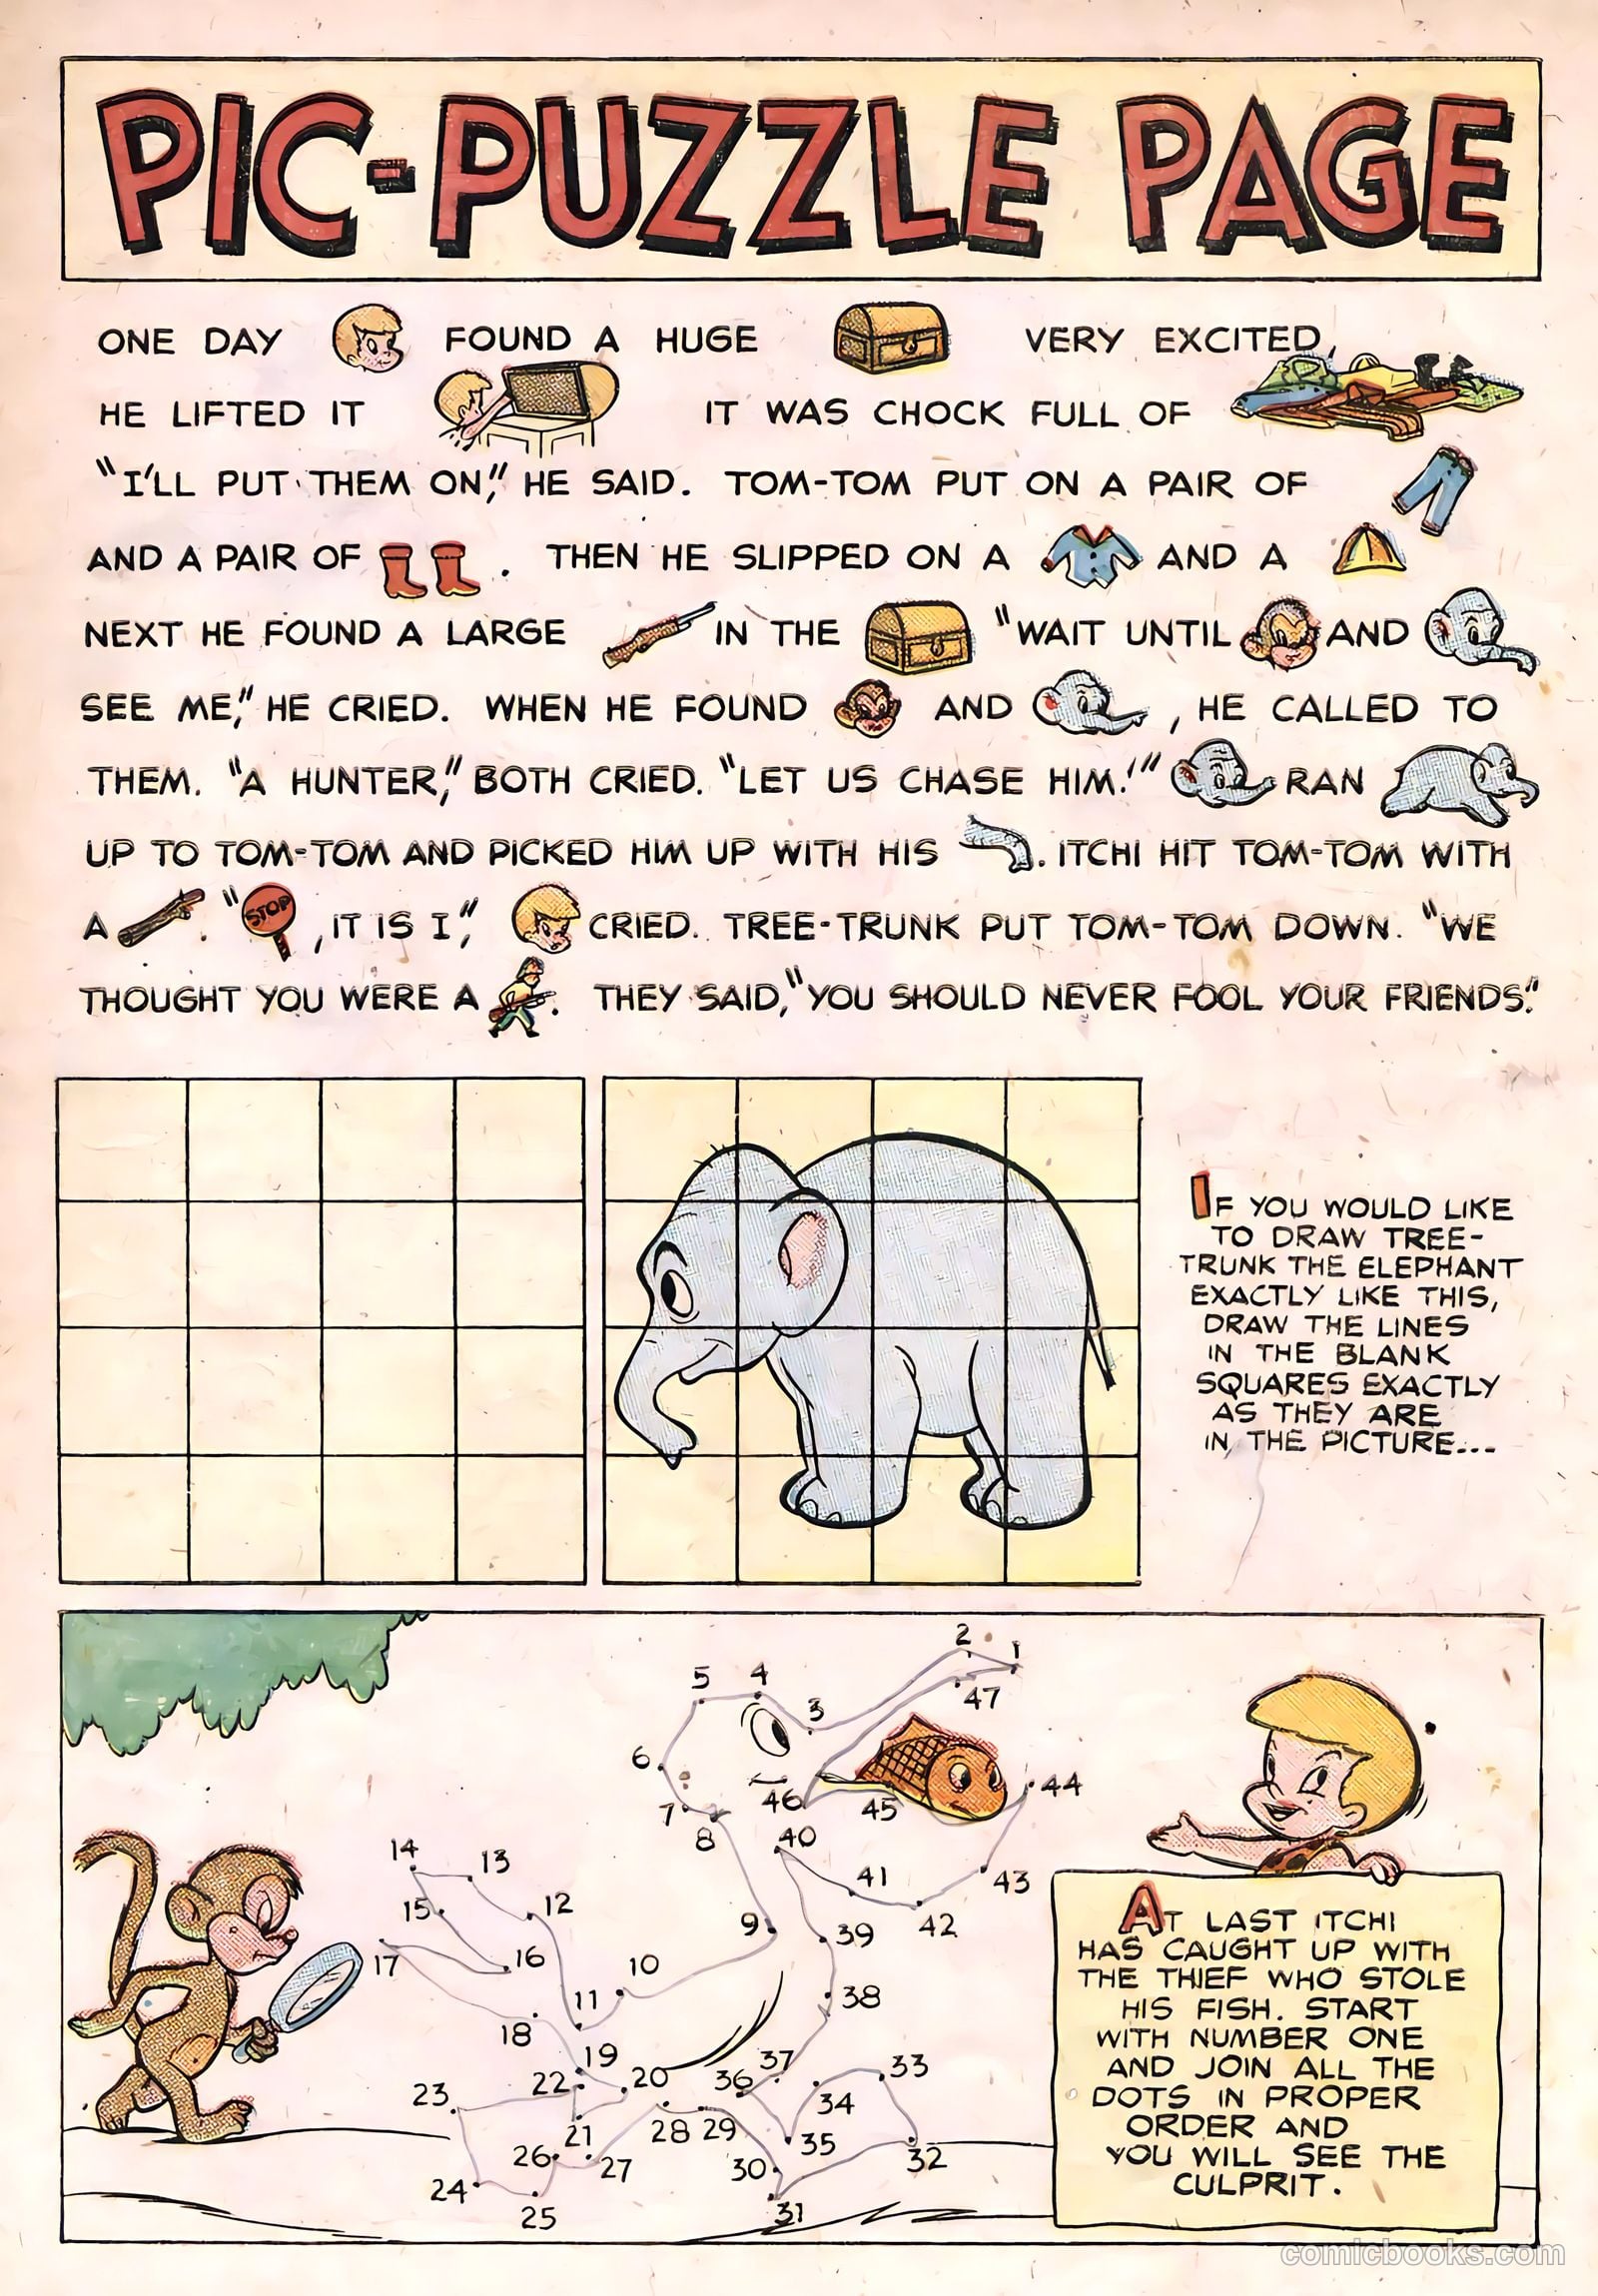 PIC-PUZZLE PAGE
ONE DAY FOUND A HUGE VERY EXCITED,
HE LIFTED IT IT WAS CHOCK FULL OF
"I'LL PUT THEM ON," HE SAID. TOM-TOM PUT ON A PAIR OF
AND A PAIR OF . THEN HE SLIPPED ON A AND A
NEXT HE FOUND A LARGE IN THE "WAIT UNTIL AND
SEE ME," HE CRIED. WHEN HE FOUND AND , HE CALLED TO
THEM. "A HUNTER," BOTH CRIED. "LET US CHASE HIM!" RAN
UP TO TOM-TOM AND PICKED HIM UP WITH HIS . ITCHI HIT TOM-TOM WITH
A . "STOP, IT IS I," CRIED. TREE-TRUNK PUT TOM-TOM DOWN. "WE
THOUGHT YOU WERE A . THEY SAID, "YOU SHOULD NEVER FOOL YOUR FRIENDS."
IF YOU WOULD LIKE
TO DRAW TREE-
TRUNK THE ELEPHANT
EXACTLY LIKE THIS,
DRAW THE LINES
IN THE BLANK
SQUARES EXACTLY
AS THEY ARE
IN THE PICTURE...
2 1
5 4
47
3
6
46 45 44
7
8 40
14 13 41 43
15 12 9 39 42
17 16 10
11 38
18
19 37 33
22 20 36
23 34
21 28 29 35
26 27 30 32
24
25 31
AT LAST ITCHI
HAS CAUGHT UP WITH
THE THIEF WHO STOLE
HIS FISH. START
WITH NUMBER ONE
AND JOIN ALL THE
DOTS IN PROPER
ORDER AND
YOU WILL SEE THE
CULPRIT.
comicbooks.com